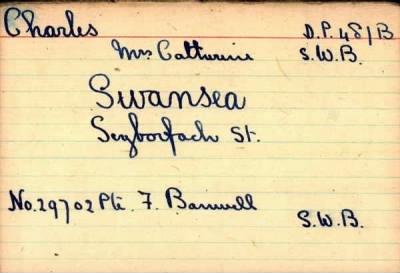 Charles D.P. 48/B
Mrs Catherine S.W.B.
Swansea
Seyborfach St.
No. 29702 Pte. F. Barnwell
S.W.B.